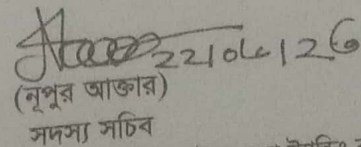 22/04/26
(নূপুর আক্তার)
সদস্য সচিব